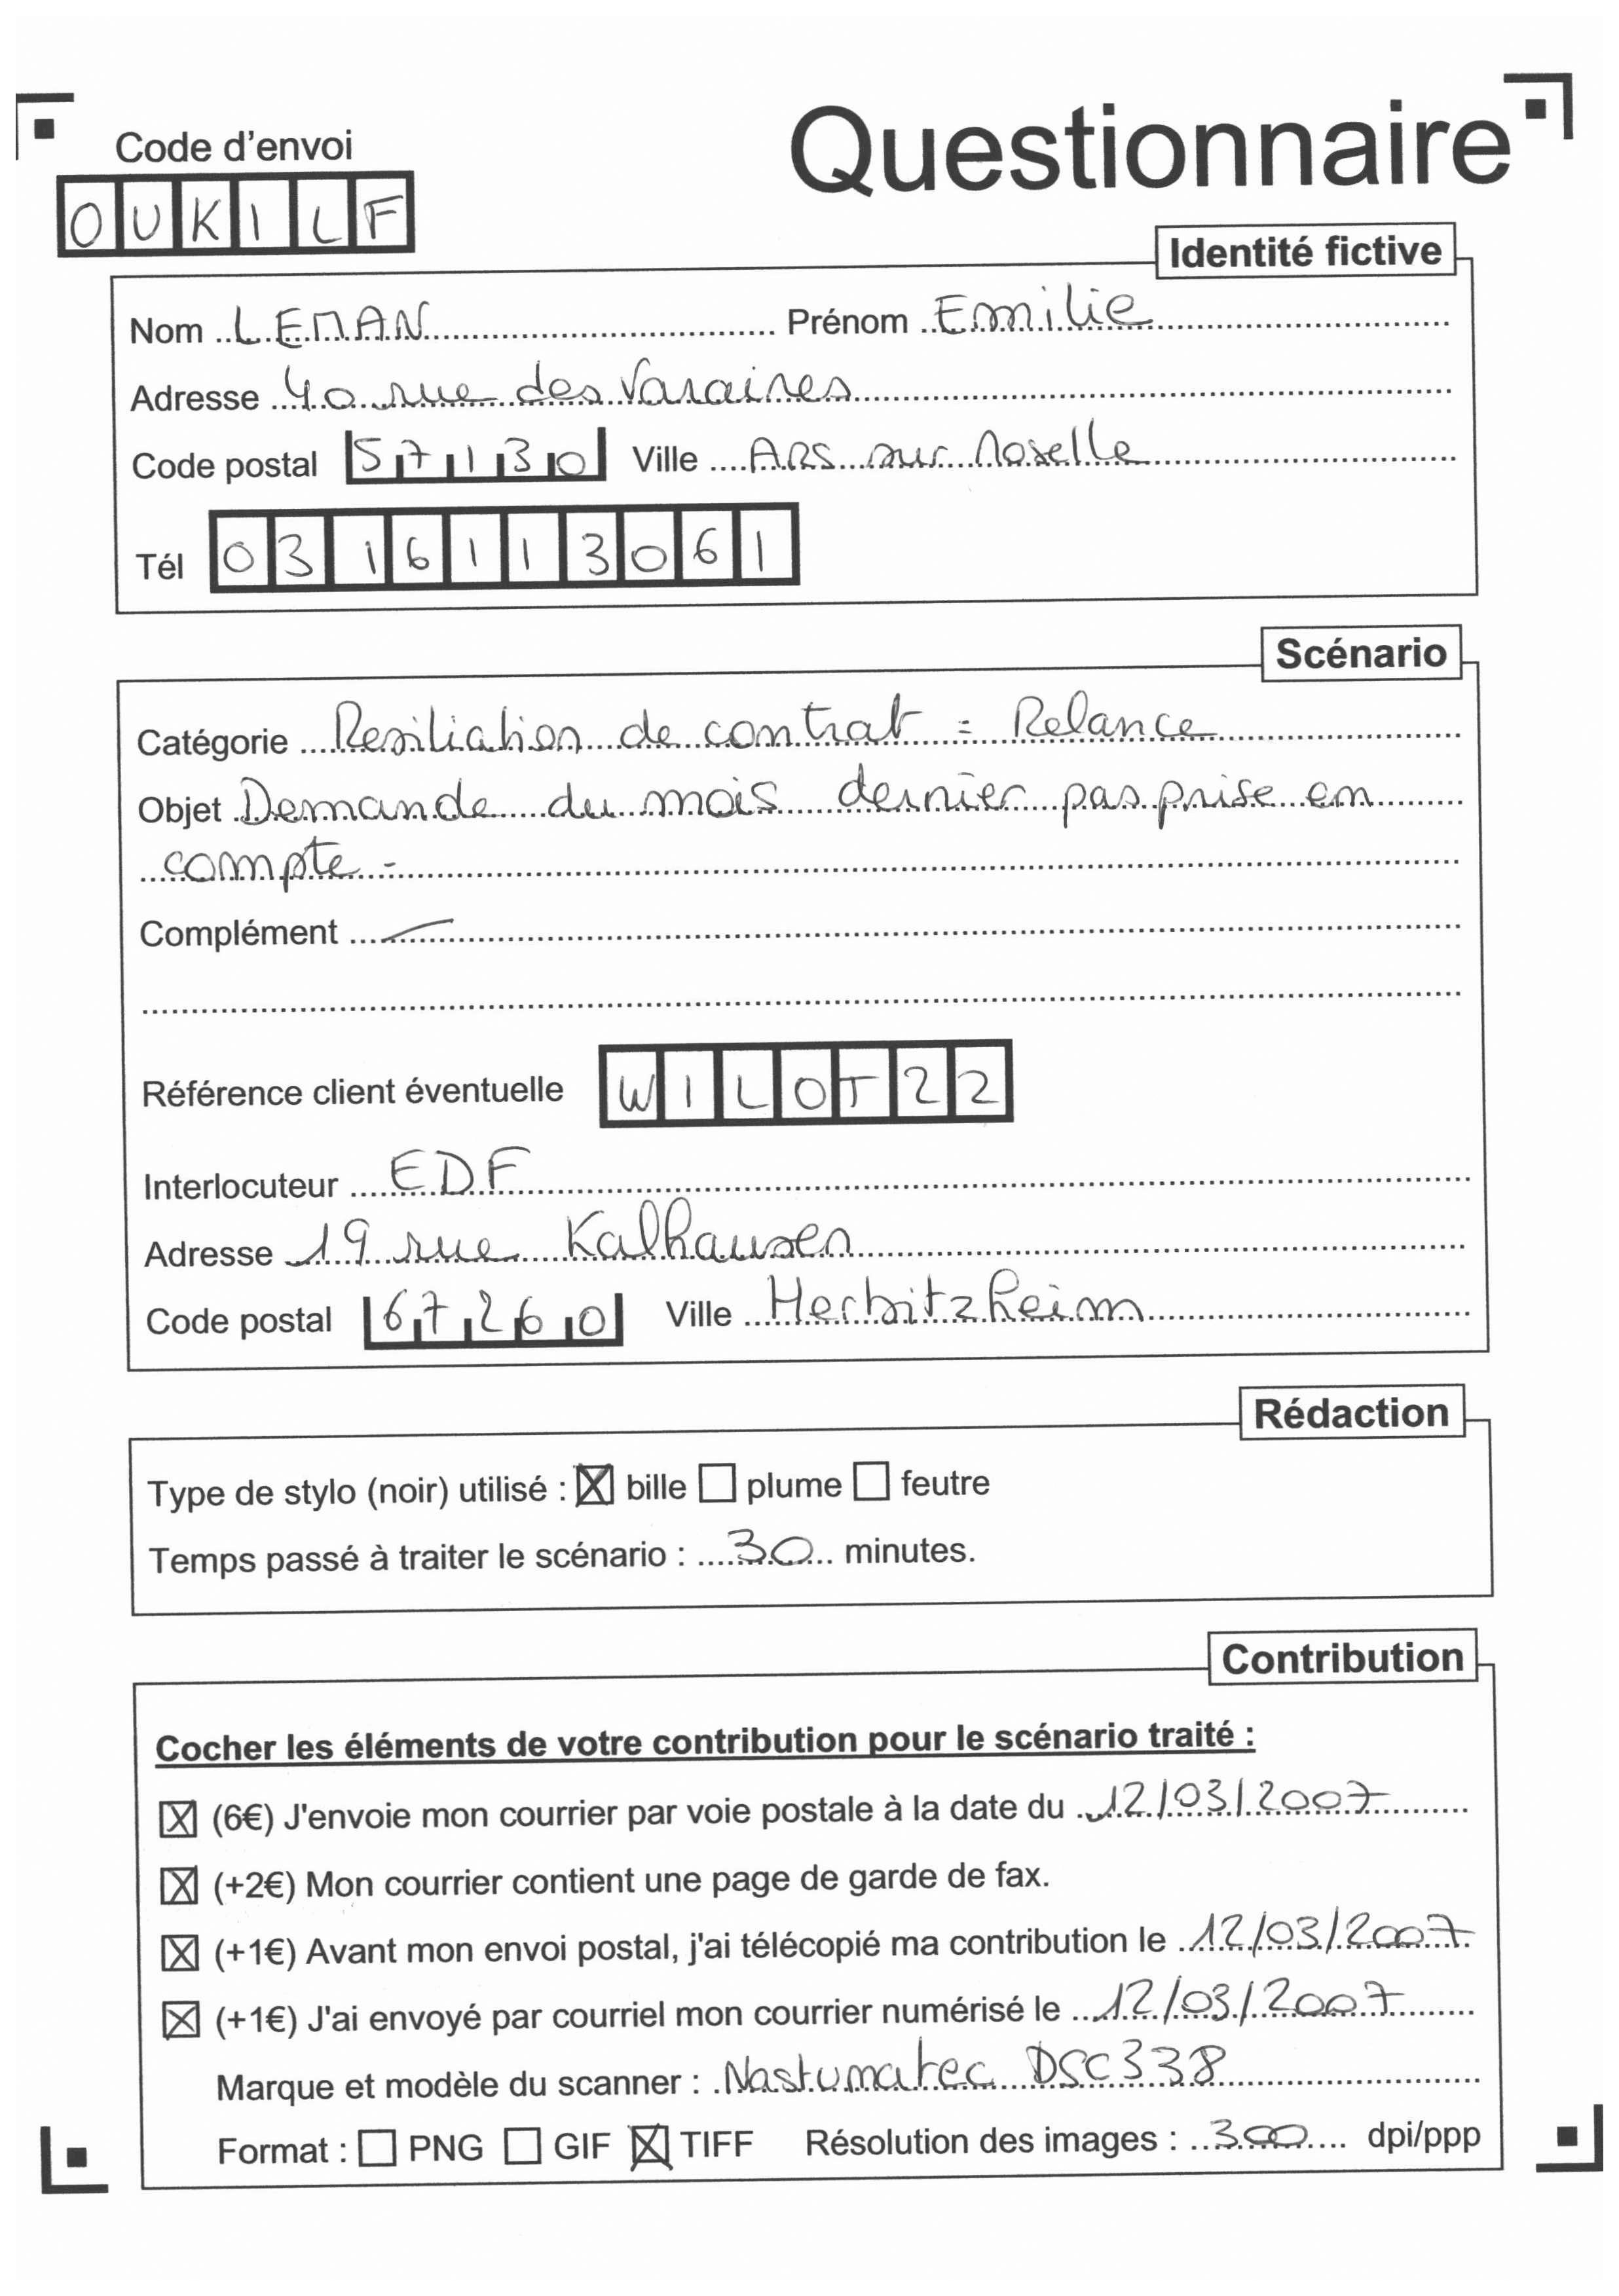 Questionnaire
Code d'envoi
OUKILF
Identité fictive
Nom LEMAN Prénom Emilie
Adresse 40 rue des Varaines
Code postal 57130 Ville ARS sur Moselle
Tél 0316113061
Scénario
Catégorie Resiliation de contrat = Relance
Objet Demande du mois dernier pas prise en
compte -
Complément —
Référence client éventuelle WILOT22
Interlocuteur EDF
Adresse 19 rue Kalhausen
Code postal 67260 Ville Herbitzheim
Rédaction
Type de stylo (noir) utilisé : ☒ bille ☐ plume ☐ feutre
Temps passé à traiter le scénario : 30 minutes.
Contribution
Cocher les éléments de votre contribution pour le scénario traité :
☒ (6€) J'envoie mon courrier par voie postale à la date du 12/03/2007
☒ (+2€) Mon courrier contient une page de garde de fax.
☒ (+1€) Avant mon envoi postal, j'ai télécopié ma contribution le 12/03/2007
☒ (+1€) J'ai envoyé par courriel mon courrier numérisé le 12/03/2007
Marque et modèle du scanner : Nastumatec DSC338
Format : ☐ PNG ☐ GIF ☒ TIFF Résolution des images : 300 dpi/ppp